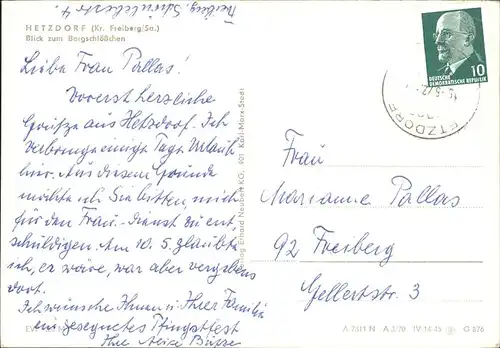 Freiberg
HETZDORF (Kr. Freiberg/Sa.)
Blick zum Bergschlößchen
Liebe Frau Pallas!
Vorerst herzliche
Grüße aus Hetzdorf. Ich
verbringe einige Tage Urlaub
hier. Aus diesem Grunde
möchte ich Sie bitten, mich
für den Frau-Dienst zu ent,
schuldigen. Am 10.5. glaubte
ich, er wäre, war aber vergebens
dort.
Ich wünsche Ihnen u. Ihrer Familie
ein gesegnetes Pfingstfest
Ihre
Verlag Erhard Neubert KG, 901 Karl-Marx-Stadt
10
DEUTSCHE
DEMOKRATISCHE REPUBLIK
HETZDORF
Frau
Marianne Pallas
92 Freiberg
Gellertstr. 3
A 7511 N A 3/70 IV-14-45 G 876